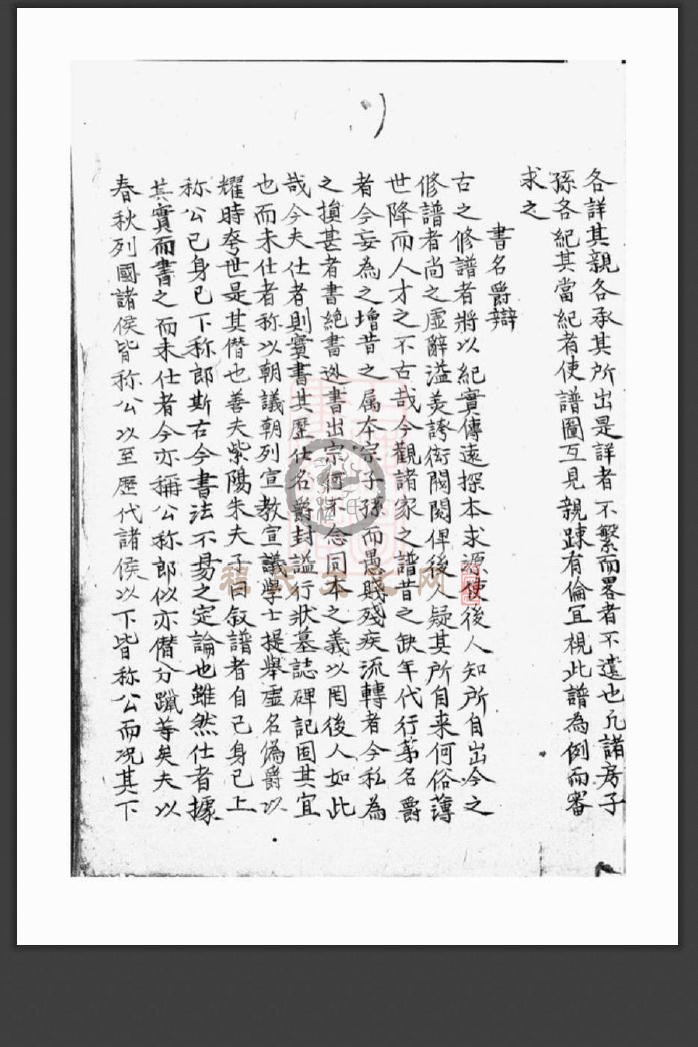 各詳其親各承其所出是詳者不繁而畧者不遺也凢諸房子
孫各紀其當紀者使譜圖互見親踈有倫宜視此譜為例而審
求之
書名爵辯
古之修譜者將以紀實傳遠探本求源使後人知所自出今之
修譜者尚之虛辭溢美誇衒閥閱俾後人疑其所自来何俗薄
世降而人才之不古哉今觀諸家之譜昔之缺年代行苐名爵
者今妄為之增昔之属本宗子孫而愚賤殘疾流轉者今私為
之損甚者書絶書迯書出宗而不念同本之義以罔後人如此
哉今夫仕者則實書其歷仕名爵封謚行狀墓誌碑記固其宜
也而未仕者称以朝議朝列宣教宣議學士提舉虛名偽爵以
耀時夸世是其僭也善夫紫陽朱夫子曰叙譜者自己身已上
称公己身已下称郎斯古今書法不昜之定論也雖然仕者據
其實而書之而未仕者今亦稱公称郎似亦僭分躐等矣夫以
春秋列國諸侯皆称公以至歷代諸侯以下皆称公而况其下